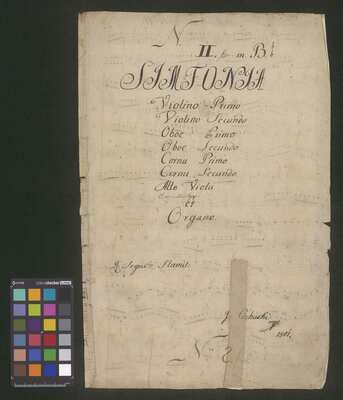 N.
II. in B.
SIMFONIA
Violino Primo
Violino Secundo
Oboe Primo
Oboe Secundo
Cornu Primo
Cornu Secundo
Alto Viola
et
Organo.
Del Signore Stamitz
J.
1801.
N